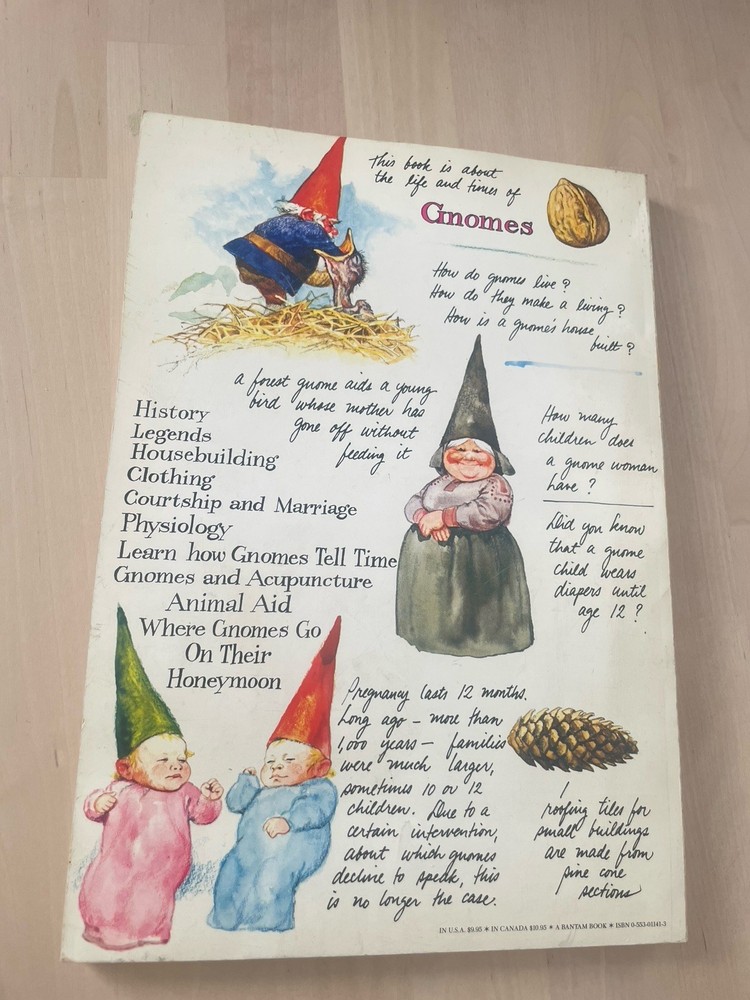 This book is about
the life and times of
Gnomes
How do gnomes live?
How do they make a living?
How is a gnome's house
built?
a forest gnome aids a young
bird whose mother has
gone off without
feeding it
History
Legends
Housebuilding
Clothing
Courtship and Marriage
Physiology
Learn how Gnomes Tell Time
Gnomes and Acupuncture
Animal Aid
Where Gnomes Go
On Their
Honeymoon
How many
children does
a gnome woman
have?
Did you know
that a gnome
child wears
diapers until
age 12?
Pregnancy lasts 12 months.
Long ago – more than
1,000 years – families
were much larger,
sometimes 10 or 12
children. Due to a
certain intervention,
about which gnomes
decline to speak, this
is no longer the case.
roofing tiles for
small buildings
are made from
pine cone
sections
IN U.S.A. $9.95 ✶ IN CANADA $10.95 ✶ A BANTAM BOOK ✶ ISBN 0-553-01141-3